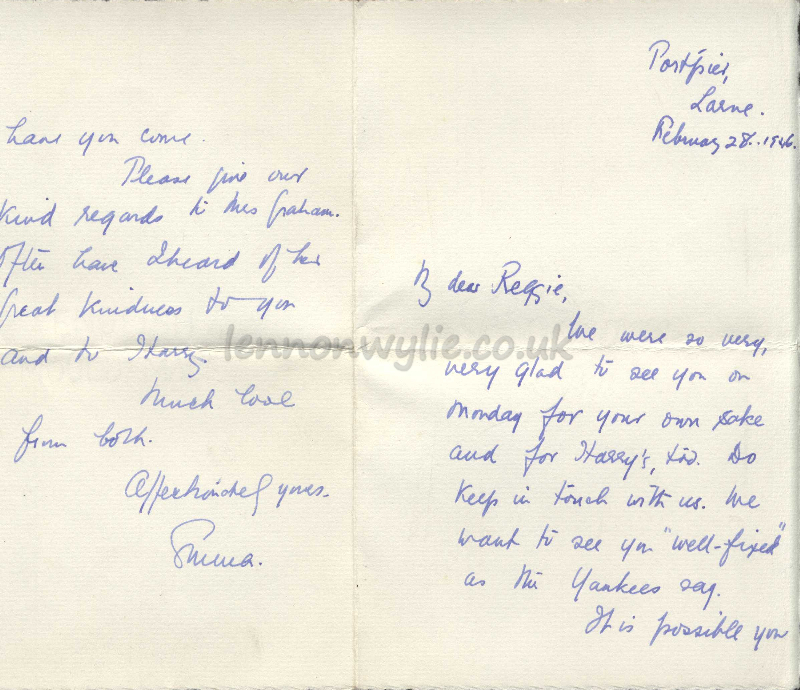 Portpier,
Larne.
February 28. 1946.
My dear Reggie,
We were so very,
very glad to see you on
Monday for your own sake
and for Harry's, too. Do
keep in touch with us. We
want to see you "well-fixed"
as the Yankees say.
It is possible you
have you come.
Please give our
kind regards to Mrs Graham.
Often have I heard of her
great kindness to you
and to Harry.
Much love
from both.
Affectionately yours.
Emma.
lennonwylie.co.uk